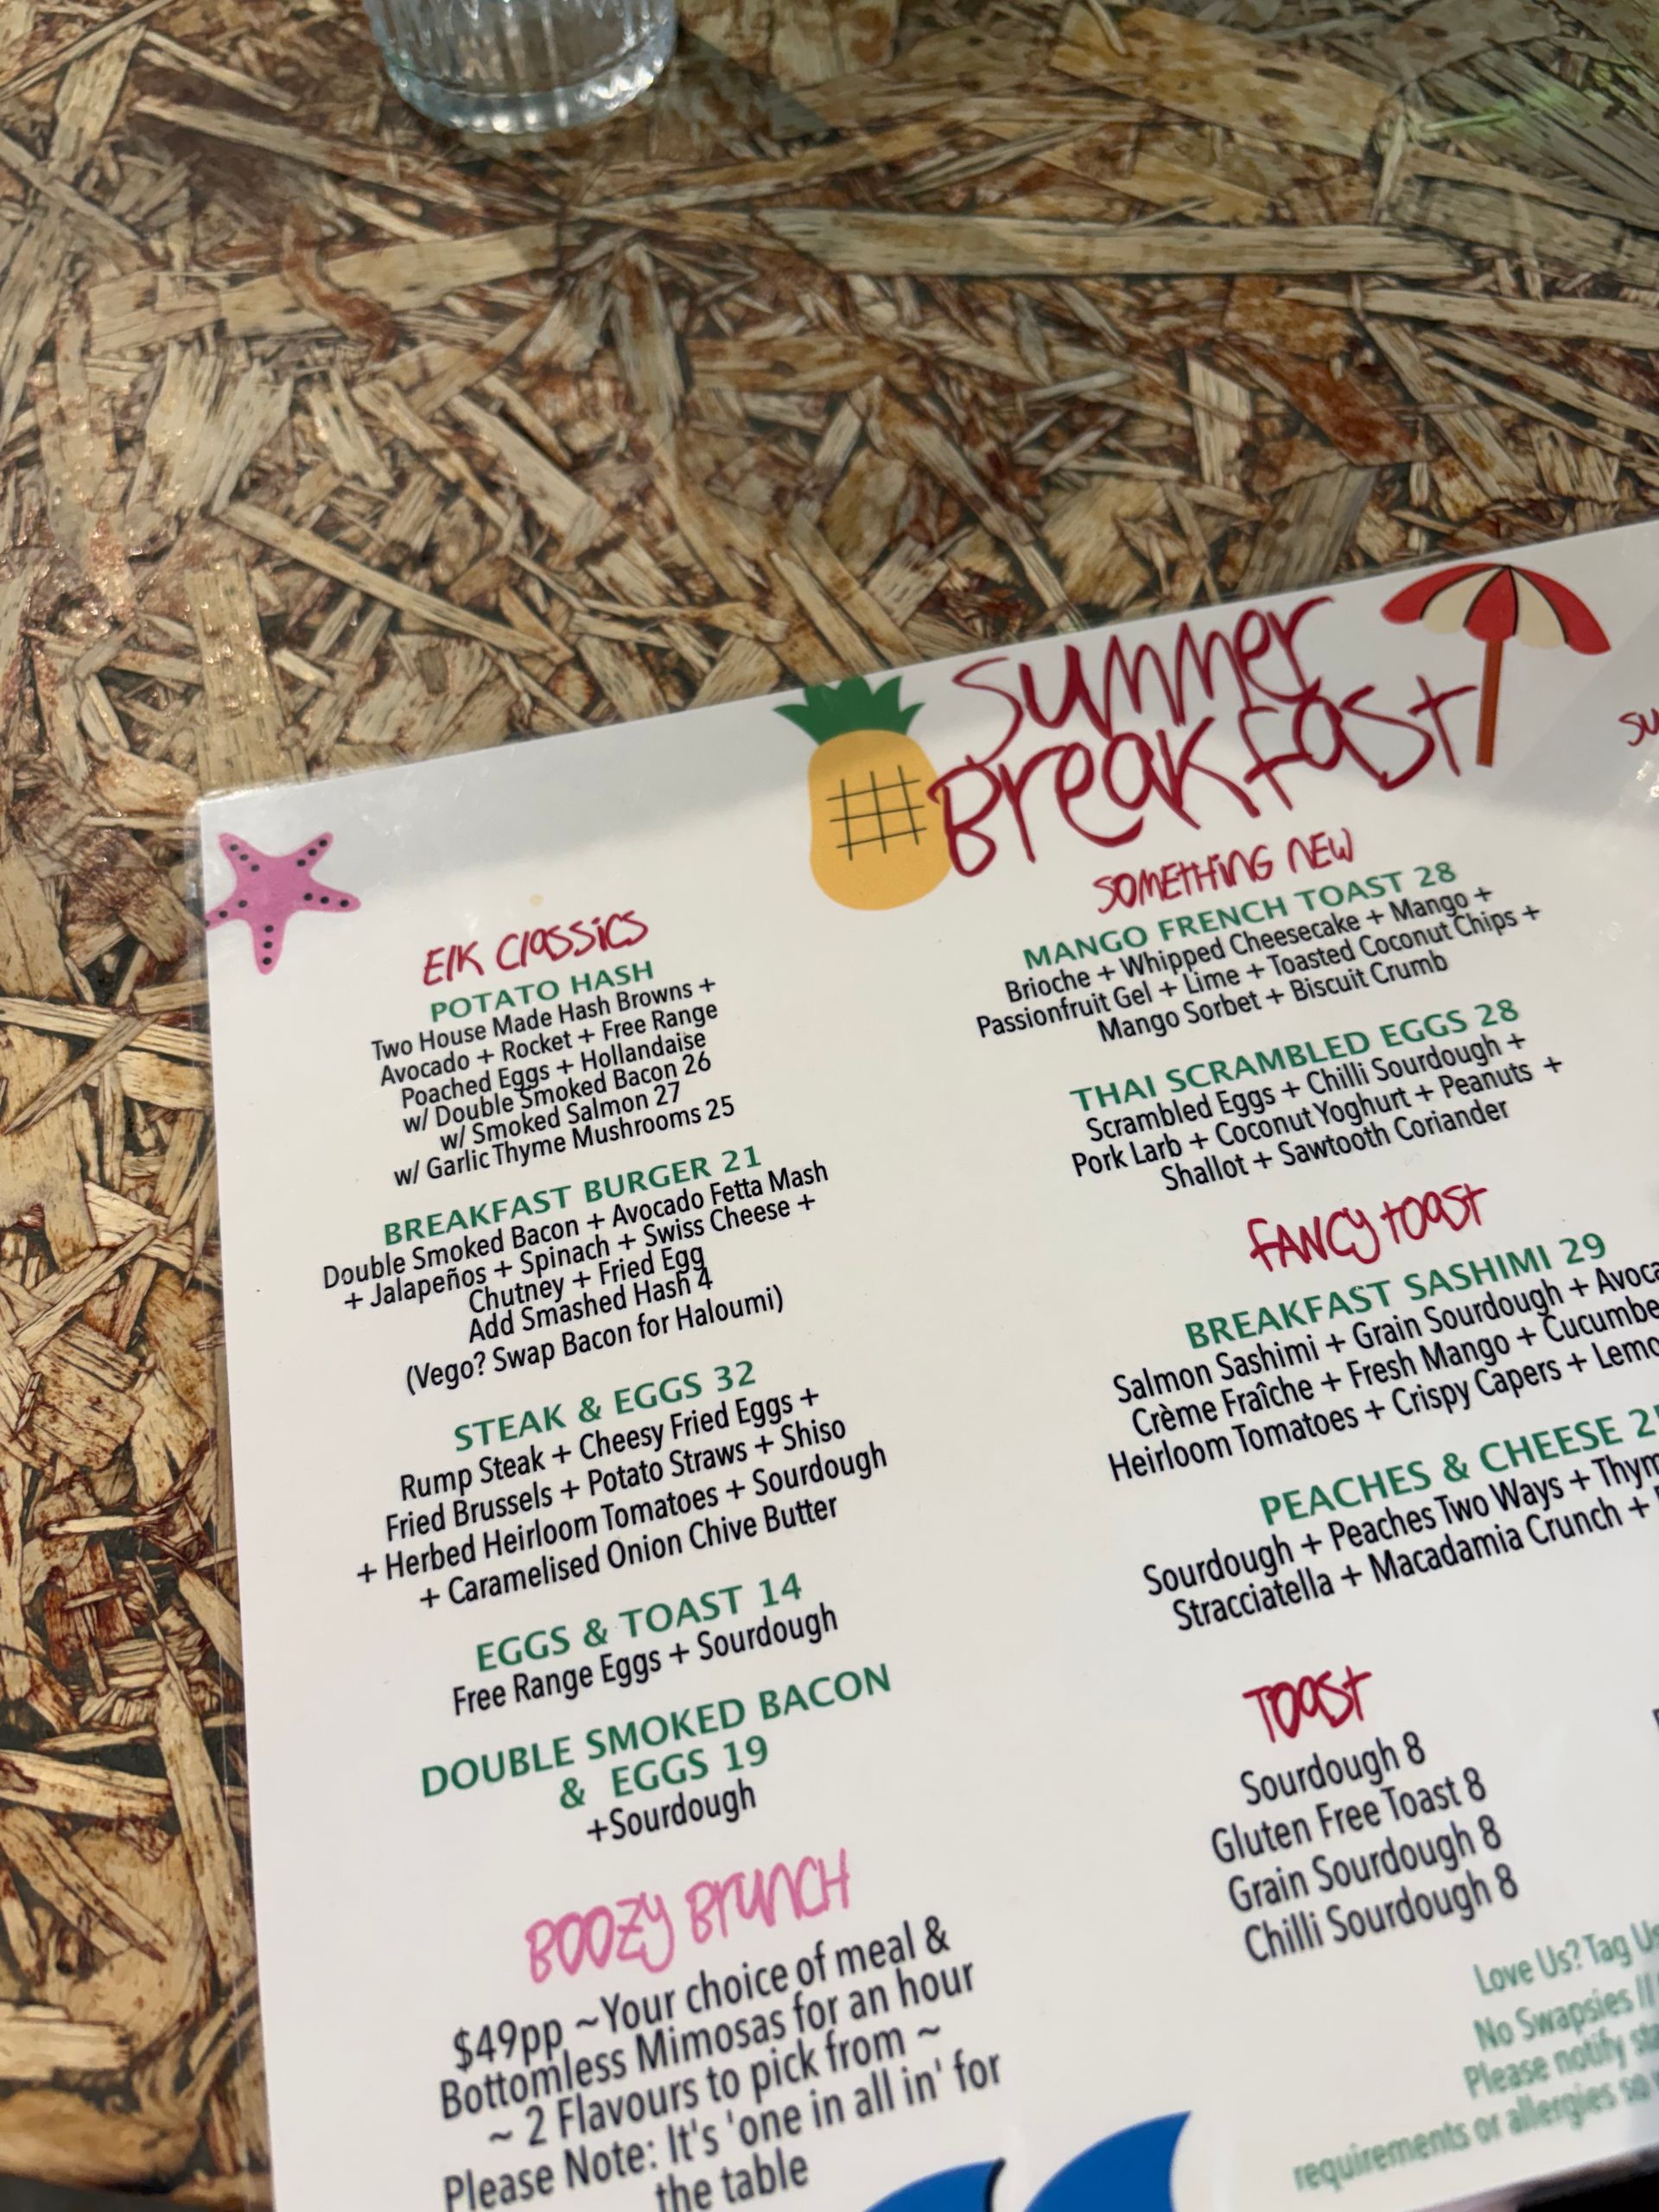 Summer
Breakfast
Elk Classics
POTATO HASH
Two House Made Hash Browns +
Avocado + Rocket + Free Range
Poached Eggs + Hollandaise
w/ Double Smoked Bacon 26
w/ Smoked Salmon 27
w/ Garlic Thyme Mushrooms 25
BREAKFAST BURGER 21
Double Smoked Bacon + Avocado Fetta Mash
+ Jalapeños + Spinach + Swiss Cheese +
Chutney + Fried Egg
Add Smashed Hash 4
(Vego? Swap Bacon for Haloumi)
STEAK & EGGS 32
Rump Steak + Cheesy Fried Eggs +
Fried Brussels + Potato Straws + Shiso
+ Herbed Heirloom Tomatoes + Sourdough
+ Caramelised Onion Chive Butter
EGGS & TOAST 14
Free Range Eggs + Sourdough
DOUBLE SMOKED BACON
& EGGS 19
+Sourdough
BOOZY BRUNCH
$49pp ~Your choice of meal &
Bottomless Mimosas for an hour
~ 2 Flavours to pick from ~
Please Note: It's 'one in all in' for
the table
SOMETHING NEW
MANGO FRENCH TOAST 28
Brioche + Whipped Cheesecake + Mango +
Passionfruit Gel + Lime + Toasted Coconut Chips +
Mango Sorbet + Biscuit Crumb
THAI SCRAMBLED EGGS 28
Scrambled Eggs + Chilli Sourdough +
Pork Larb + Coconut Yoghurt + Peanuts +
Shallot + Sawtooth Coriander
FANCY TOAST
BREAKFAST SASHIMI 29
Salmon Sashimi + Grain Sourdough + Avoca
Crème Fraîche + Fresh Mango + Cucumbe
Heirloom Tomatoes + Crispy Capers + Lemo
PEACHES & CHEESE 2
Sourdough + Peaches Two Ways + Thym
Stracciatella + Macadamia Crunch +
Toast
Sourdough 8
Gluten Free Toast 8
Grain Sourdough 8
Chilli Sourdough 8
Love Us? Tag Us
No Swapsies //
Please notify sta
requirements or allergies so
su